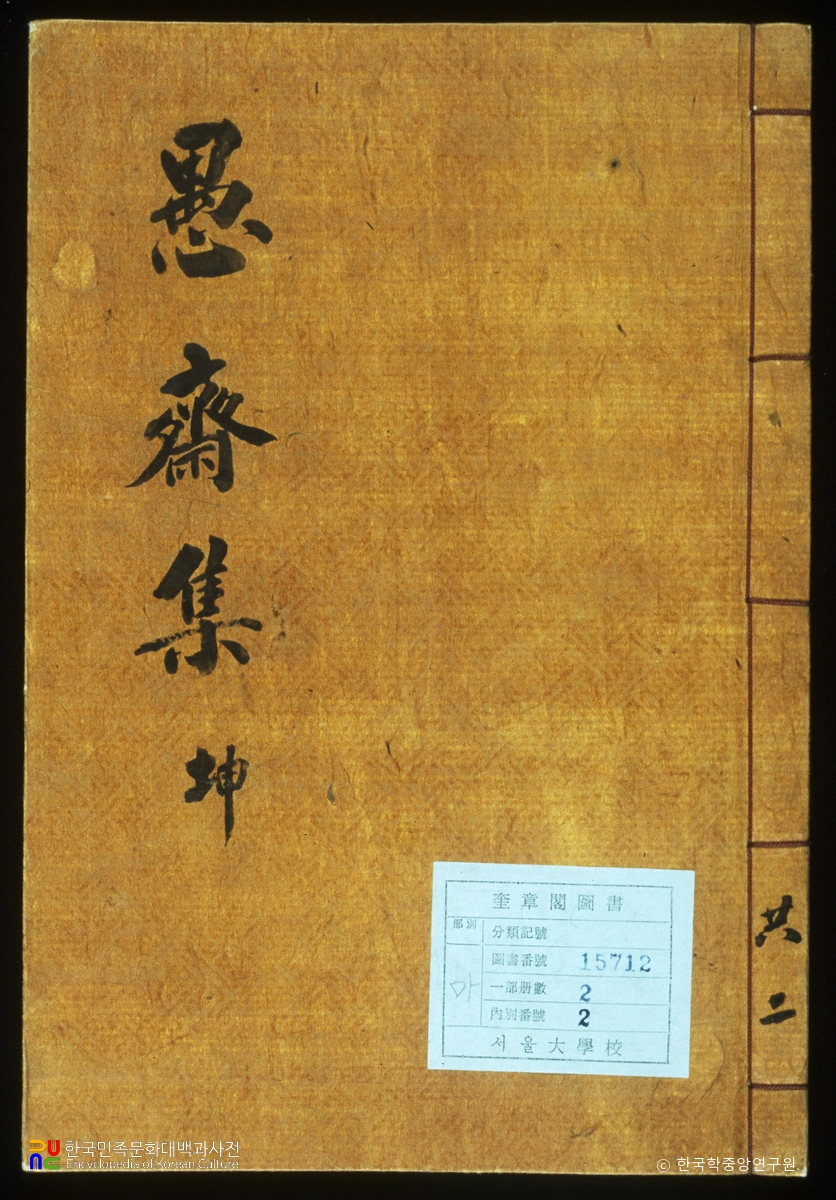 愚齋集 坤
共二
奎章閣圖書
部別
分類記號
圖書番號 15712
마
一部册數 2
內別番號 2
서울大學校
한국민족문화대백과사전
Encyclopedia of Korean Culture
© 한국학중앙연구원